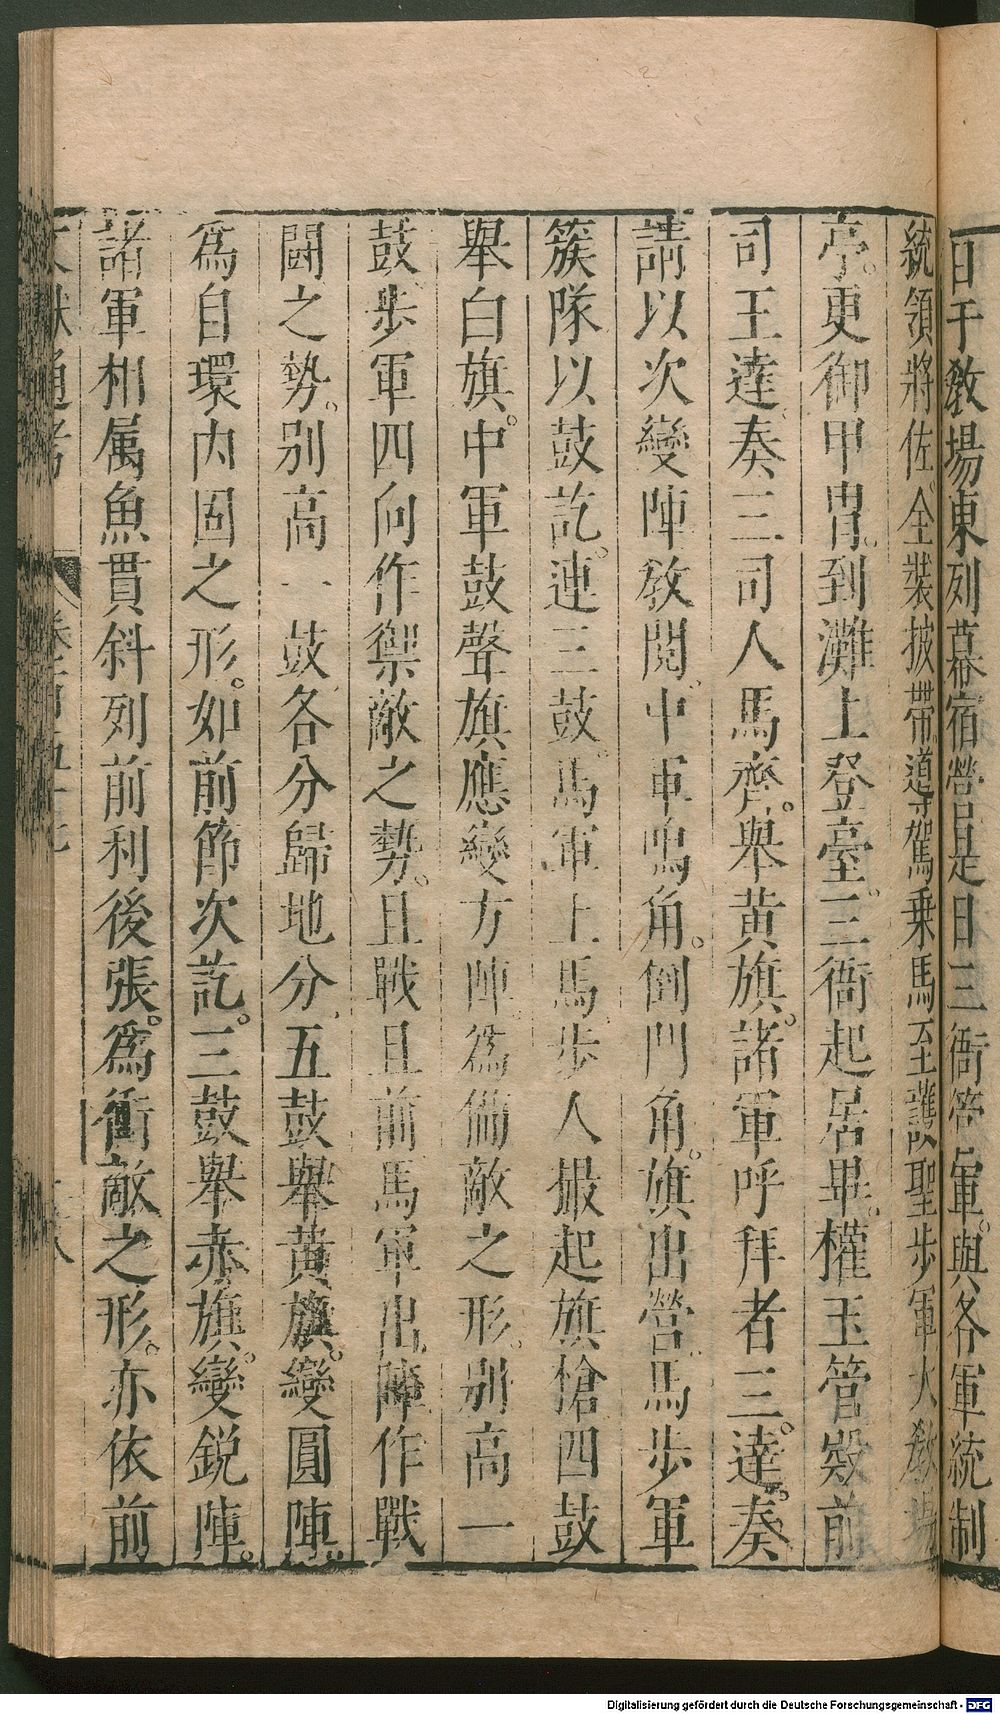 日于教場東列幕宿營是日三衙管軍與各軍統制
統領將佐全裝披帶導駕乗馬至護聖步軍大教場
亭更御甲冑到灘上登臺三衙起居畢權主管殿前
司王逵奏三司人馬齊舉黄旗諸軍呼拜者三逵奏
請以次變陣教閱中軍鳴角倒門角旗出營馬步軍
簇隊以鼓訖連三鼓馬軍上馬步人撮起旗槍四鼓
舉白旗中軍鼓聲旗應變方陣為備敵之形別高一
鼓步軍四向作禦敵之勢且戰且前馬軍出陣作戰
鬪之勢別高一鼓各分歸地分五鼓舉黄旗變圓陣
為自環内固之形如前節次訖三鼓舉赤旗變鋭陣
諸軍相属魚貫斜列前利後張為衝敵之形亦依前
Digitalisierung gefördert durch die Deutsche Forschungsgemeinschaft - DFG